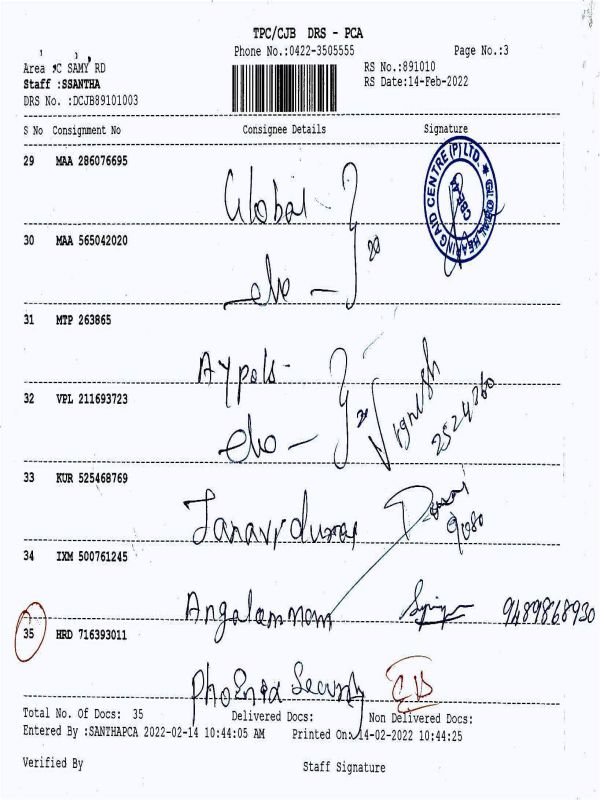 TPC/CJB DRS - PCA
Phone No.:0422-3505555 Page No.:3
Area :C SAMY RD RS No.:891010
Staff :SSANTHA RS Date:14-Feb-2022
DRS No. :DCJB89101003
S No Consignment No Consignee Details Signature
29 MAA 286076695
Global
HEARING AID CENTRE (P) LTD.
30 MAA 565042020
20
31 MTP 263865
Aypols
32 VPL 211693723
Vignesh
2524260
33 KUR 525468769
9080
34 IXM 500761245
Angalamman 9489868930
35 HRD 716393011
Phoenix Security
Total No. Of Docs: 35 Delivered Docs: Non Delivered Docs:
Entered By :SANTHAPCA 2022-02-14 10:44:05 AM Printed On: 14-02-2022 10:44:25
Verified By Staff Signature